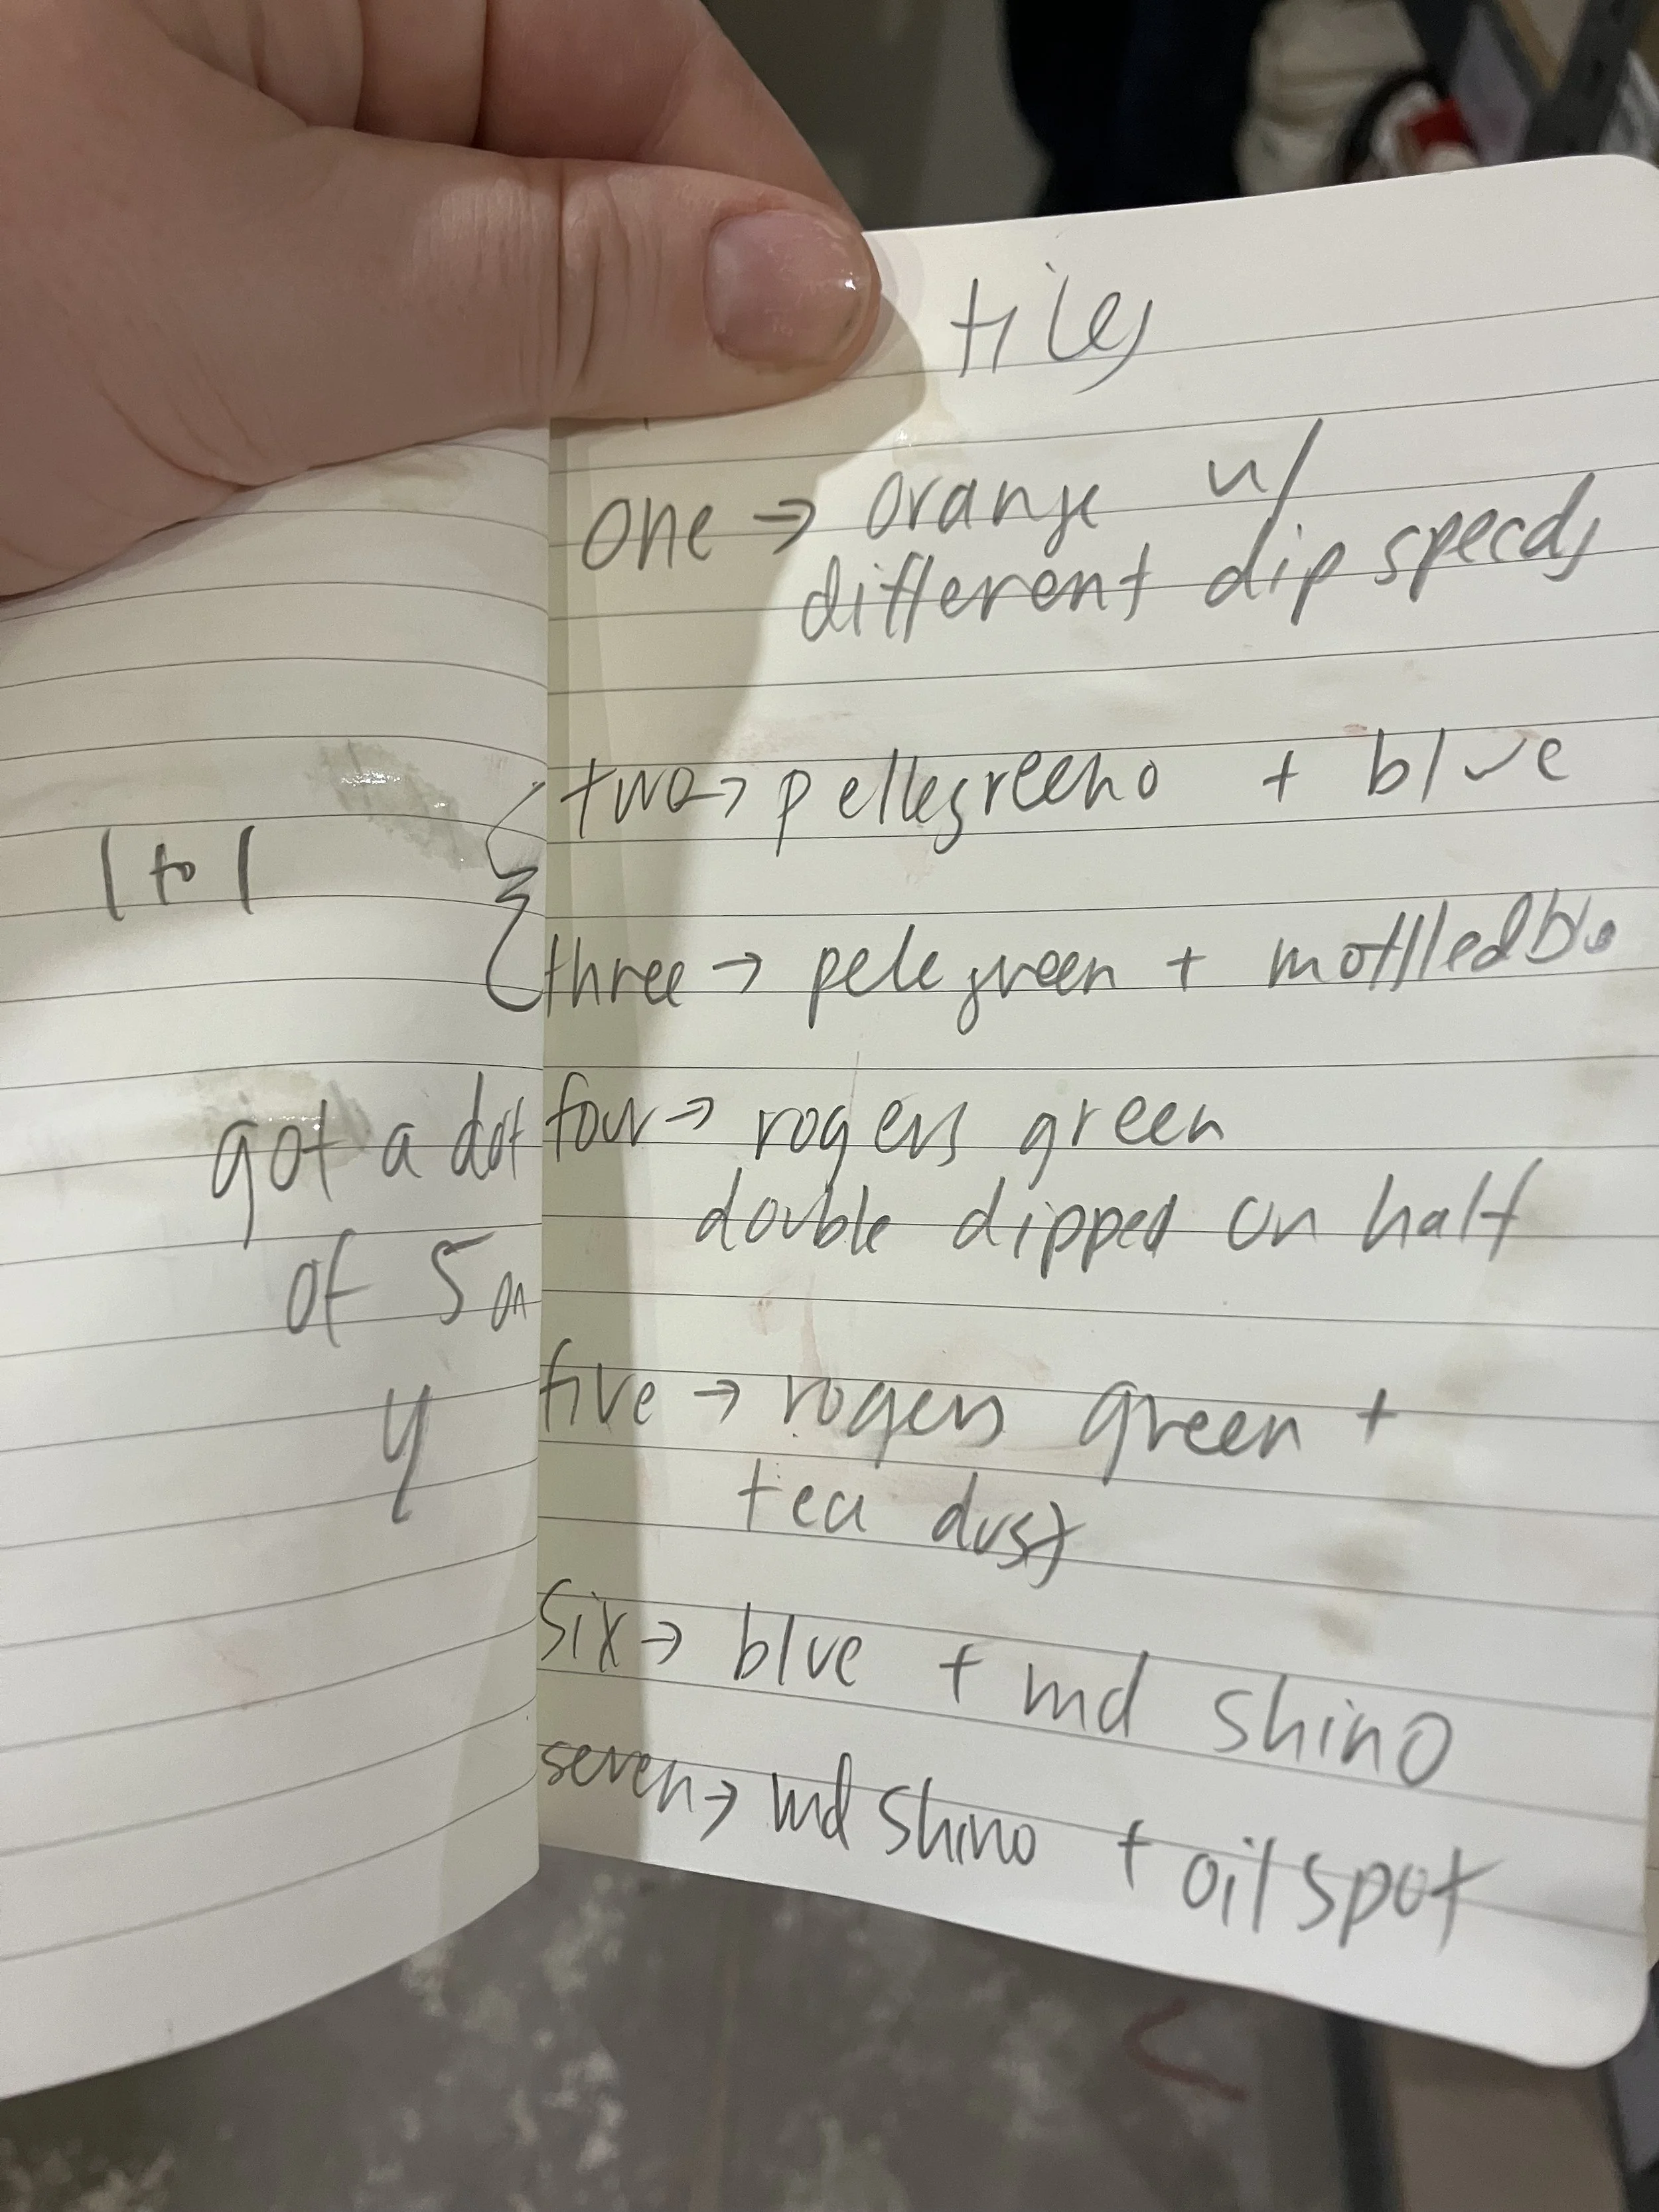 tiles
one → orange w/
different dip speeds
two → pellegreeno + blue
1 to 1
three → pele green + mottled blue
got a dot
four → rogers green
double dipped on half
of 5 on
4
five → rogers green +
tea dust
six → blue + md shino
seven → md shino + oil spot